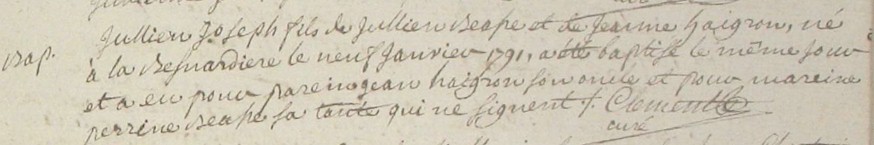 Bap. Jullien Joseph fils de Jullien Beasse et de Jeanne haigron, né
à la Besnardiere le neuf Janvier 1791, a été baptisé le même jour
et a eu pour parein jean haigron son oncle et pour mareine
perrine Beasse sa tante qui ne signent /.
curé